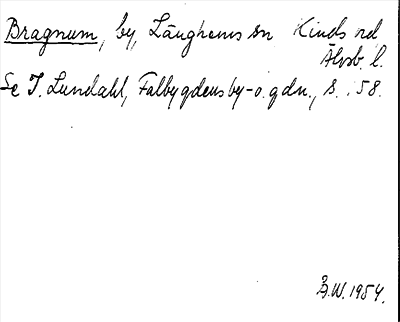 Bragnum, by, Länghems sn Kinds hd
Älvsb. l.
Se I. Lundahl, Falbygdens by- o. gdn., s. 58.
B.W. 1954.